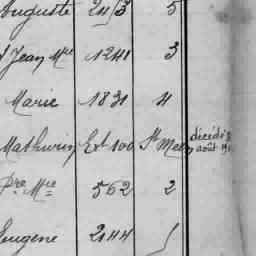 Auguste 2413 5
Jean Mie 1241 3
Marie 1831 4
Mathurin Ext 100 St Meen décédé
août
Pre Mie 562 2
Eugene 2044 1